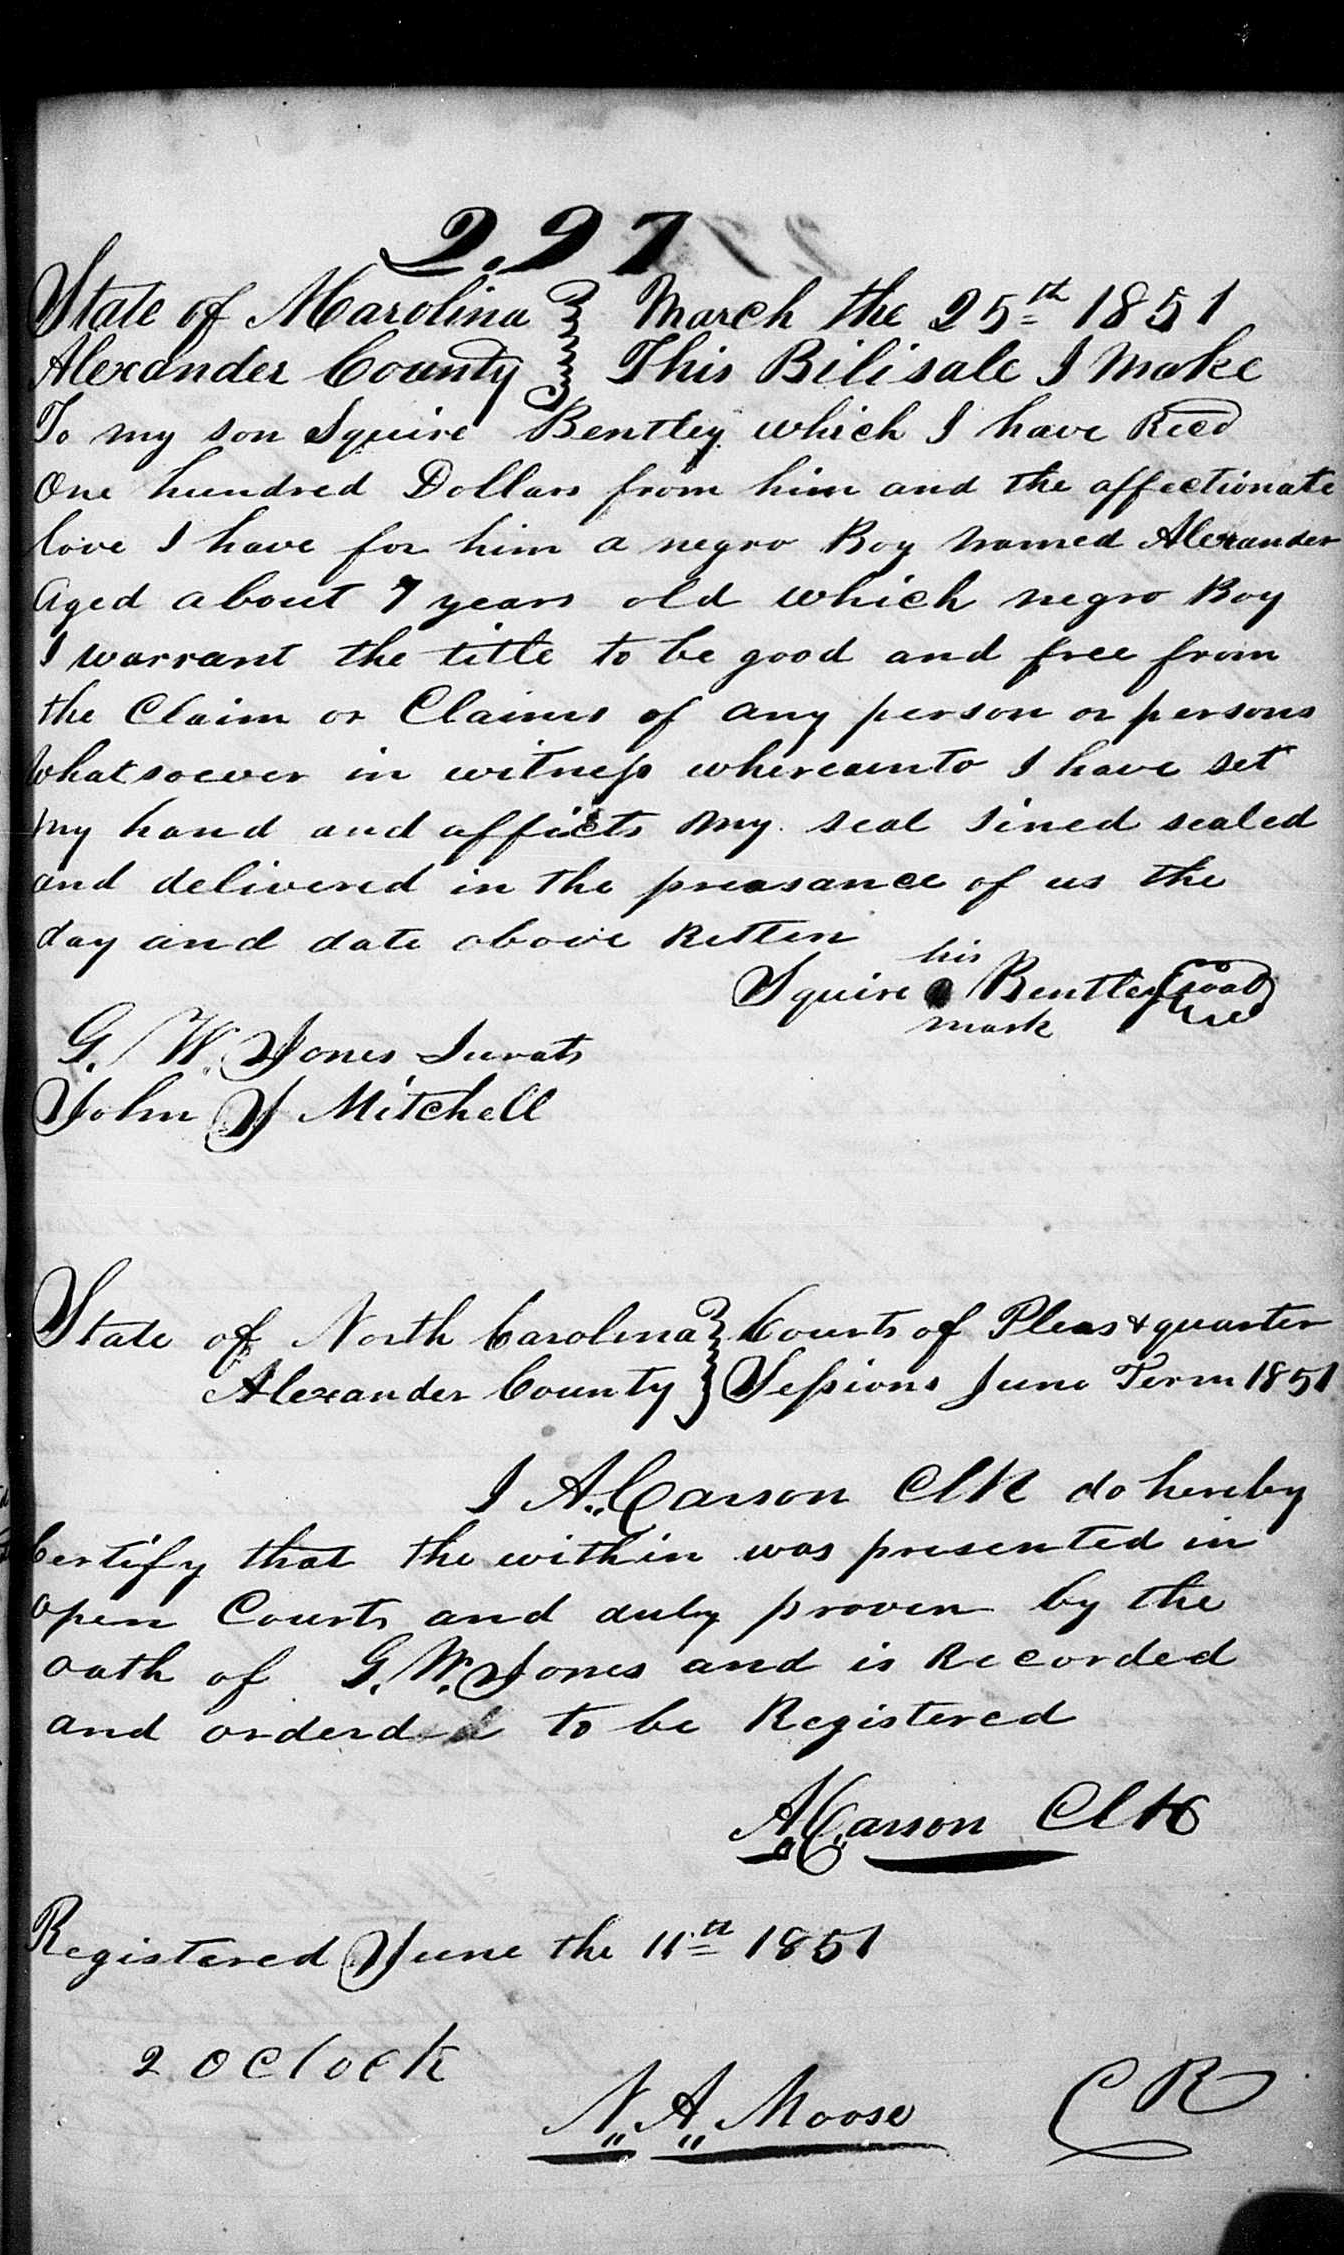 297
State of N Carolina } March the 25th 1851
Alexander County } This Bilisale I Make
To my son Squire Bentley which I have Recd
One hundred Dollars from him and the affectionate
love I have for him a negro Boy Named Alexander
Aged about 7 years old which negro Boy
I warrant the title to be good and free from
the Claim or Claims of any person or persons
Whatsoever in witness whereunto I have set
my hand and afficts my seal Sined sealed
and delivered in the preasance of us the
day and date above Retten
his
Squire Bentley (seal)
mark
G. W. Jones Jurat
John J Mitchell
State of North Carolina } Courts of Pleas & quarter
Alexander County } Sessions June Term 1851
I A. Carson Clk do hereby
Certify that the within was presented in
open Court and duly proven by the
oath of G. W. Jones and is Recorded
and orderd to be Registered
A. Carson Clk
Registered June the 11th 1851
2 oclock
N. A. Moose CR